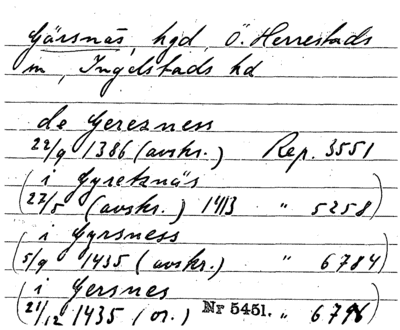 Gärsnäs, hgd, Ö. Herrestads
sn, Ingelstads hd
de Gerezness
22/9 1386 (avskr.) Rep. 3551
(i Gyretznäs
27/5 (avskr.) 1413 " 5258)
(i Gyrsness
5/9 1435 (avskr.) " 6784)
(i Gersnes
21/12 1435 (or.) Nr 5451. " 6796)